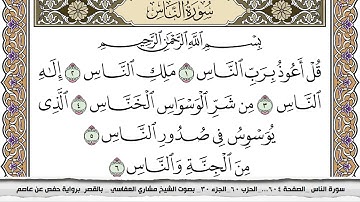 سُورَةُ النَّاسِ
بِسْمِ اللَّهِ الرَّحْمَٰنِ الرَّحِيمِ
قُلْ أَعُوذُ بِرَبِّ النَّاسِ ١ مَلِكِ النَّاسِ ٢ إِلَٰهِ
النَّاسِ ٣ مِن شَرِّ الْوَسْوَاسِ الْخَنَّاسِ ٤ الَّذِي
يُوَسْوِسُ فِي صُدُورِ النَّاسِ ٥
مِنَ الْجِنَّةِ وَالنَّاسِ ٦
سورة الناس الصفحة ٦٠٤ ... الحزب ٦٠ الجزء ٣٠ بصوت الشيخ مشاري العفاسي بالقصر برواية حفص عن عاصم